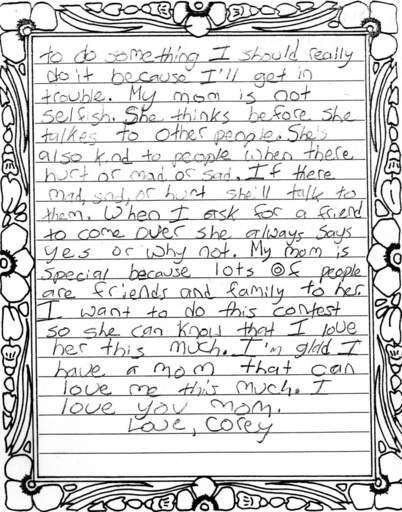 to do something I should really
do it because I'll get in
trouble. My mom is not
selfish. She thinks before she
talkes to other people. She's
also kind to people when there
hurt or mad or sad. If there
mad, sad, or hurt she'll talk to
them. When I ask for a friend
to come over she always says
yes or why not. My mom is
special because lots of people
are friends and family to her.
I want to do this contest
so she can know that I love
her this much. I'm glad I
have a mom that can
love me this much. I
love you mom.
Love, Corey